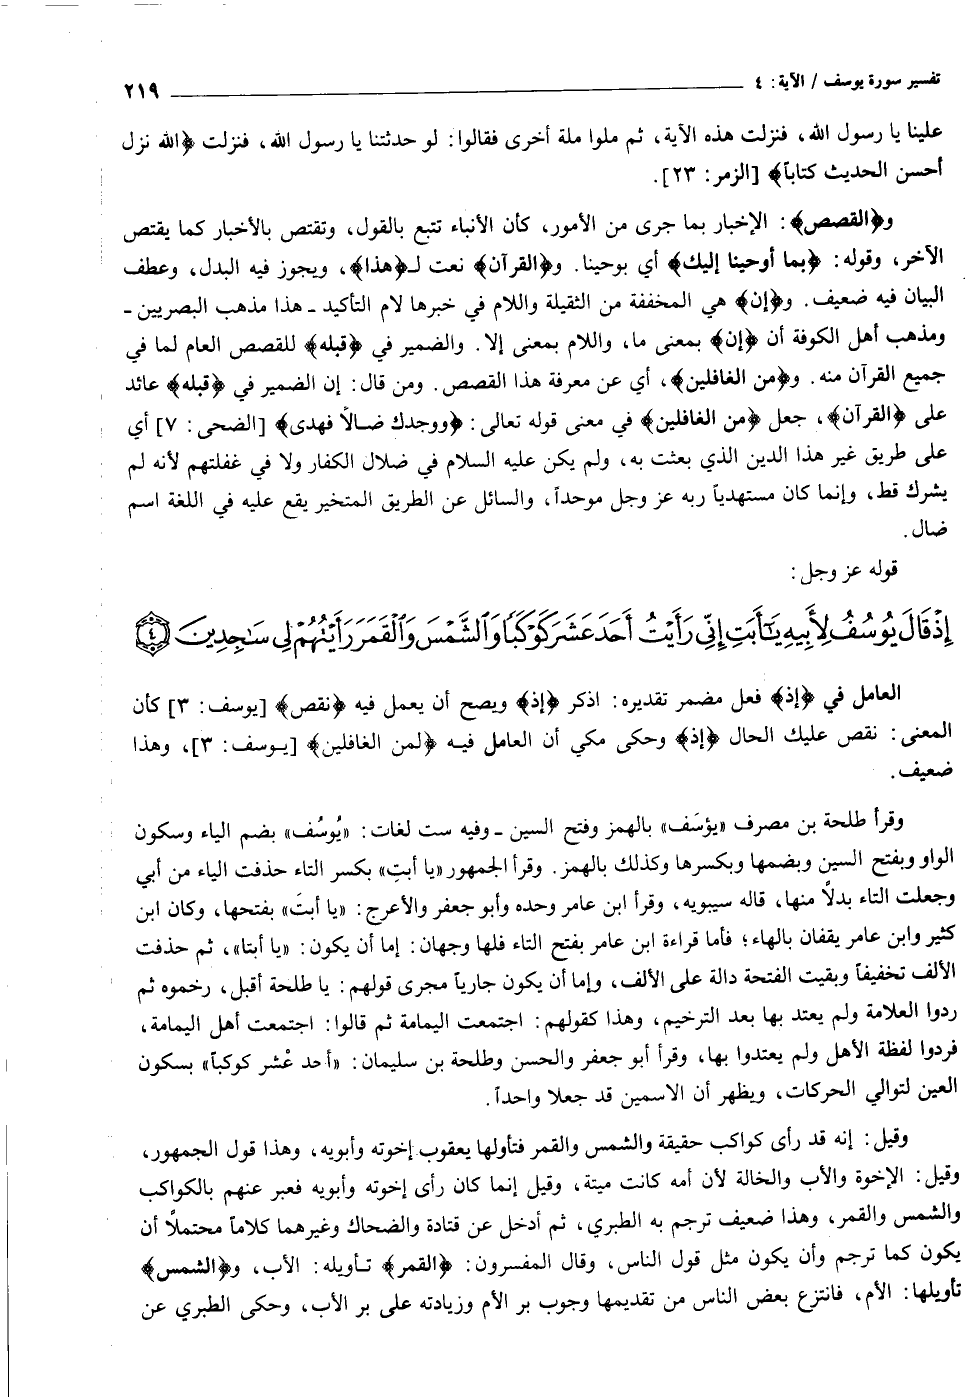 تفسير سورة يوسف / الآية: ٤ ٢١٩
علينا يا رسول الله، فنزلت هذه الآية، ثم ملوا ملة أخرى فقالوا: لو حدثتنا يا رسول الله، فنزلت ﴿الله نزل
أحسن الحديث كتاباً﴾ [الزمر: ٢٣].
و﴿القصص﴾: الإخبار بما جرى من الأمور، كأن الأنباء تتبع بالقول، وتقتص بالأخبار كما يقتص
الآخر، وقوله: ﴿بما أوحينا إليك﴾ أي بوحينا. و﴿القرآن﴾ نعت لـ﴿هذا﴾، ويجوز فيه البدل، وعطف
البيان فيه ضعيف. و﴿إن﴾ هي المخففة من الثقيلة واللام في خبرها لام التأكيد ـ هذا مذهب البصريين ـ
ومذهب أهل الكوفة أن ﴿إن﴾ بمعنى ما، واللام بمعنى إلا. والضمير في ﴿قبله﴾ للقصص العام لما في
جميع القرآن منه. و﴿من الغافلين﴾، أي عن معرفة هذا القصص. ومن قال: إن الضمير في ﴿قبله﴾ عائد
على ﴿القرآن﴾، جعل ﴿من الغافلين﴾ في معنى قوله تعالى: ﴿ووجدك ضالاً فهدى﴾ [الضحى: ٧] أي
على طريق غير هذا الدين الذي بعثت به، ولم يكن عليه السلام في ضلال الكفار ولا في غفلتهم لأنه لم
يشرك قط، وإنما كان مستهدياً ربه عز وجل موحداً، والسائل عن الطريق المتخير يقع عليه في اللغة اسم
ضال.
قوله عز وجل:
إِذْ قَالَ يُوسُفُ لِأَبِيهِ يَٰٓأَبَتِ إِنِّى رَأَيْتُ أَحَدَ عَشَرَ كَوْكَبًا وَٱلشَّمْسَ وَٱلْقَمَرَ رَأَيْتُهُمْ لِى سَٰجِدِينَ ٤
العامل في ﴿إذ﴾ فعل مضمر تقديره: اذكر ﴿إذ﴾ ويصح أن يعمل فيه ﴿نقص﴾ [يوسف: ٣] كأن
المعنى: نقص عليك الحال ﴿إذ﴾ وحكى مكي أن العامل فيه ﴿لمن الغافلين﴾ [يوسف: ٣]، وهذا
ضعيف.
وقرأ طلحة بن مصرف «يؤسَف» بالهمز وفتح السين ـ وفيه ست لغات: «يُوسُف» بضم الياء وسكون
الواو وبفتح السين وبضمها وبكسرها وكذلك بالهمز. وقرأ الجمهور «يا أبتِ» بكسر التاء حذفت الياء من أبي
وجعلت التاء بدلاً منها، قاله سيبويه، وقرأ ابن عامر وحده وأبو جعفر والأعرج: «يا أبتَ» بفتحها، وكان ابن
كثير وابن عامر يقفان بالهاء؛ فأما قراءة ابن عامر بفتح التاء فلها وجهان: إما أن يكون: «يا أبتا»، ثم حذفت
الألف تخفيفاً وبقيت الفتحة دالة على الألف، وإما أن يكون جارياً مجرى قولهم: يا طلحة أقبل، رخموه ثم
ردوا العلامة ولم يعتد بها بعد الترخيم، وهذا كقولهم: اجتمعت اليمامة ثم قالوا: اجتمعت أهل اليمامة،
فردوا لفظة الأهل ولم يعتدوا بها، وقرأ أبو جعفر والحسن وطلحة بن سليمان: «أحد عْشر كوكباً» بسكون
العين لتوالي الحركات، ويظهر أن الاسمين قد جعلا واحداً.
وقيل: إنه قد رأى كواكب حقيقة والشمس والقمر فتأولها يعقوب إخوته وأبويه، وهذا قول الجمهور،
وقيل: الإخوة والأب والخالة لأن أمه كانت ميتة، وقيل إنما كان رأى إخوته وأبويه فعبر عنهم بالكواكب
والشمس والقمر، وهذا ضعيف ترجم به الطبري، ثم أدخل عن قتادة والضحاك وغيرهما كلاماً محتملاً أن
يكون كما ترجم وأن يكون مثل قول الناس، وقال المفسرون: ﴿القمر﴾ تأويله: الأب، و﴿الشمس﴾
تأويلها: الأم، فانتزع بعض الناس من تقديمها وجوب بر الأم وزيادته على بر الأب، وحكى الطبري عن